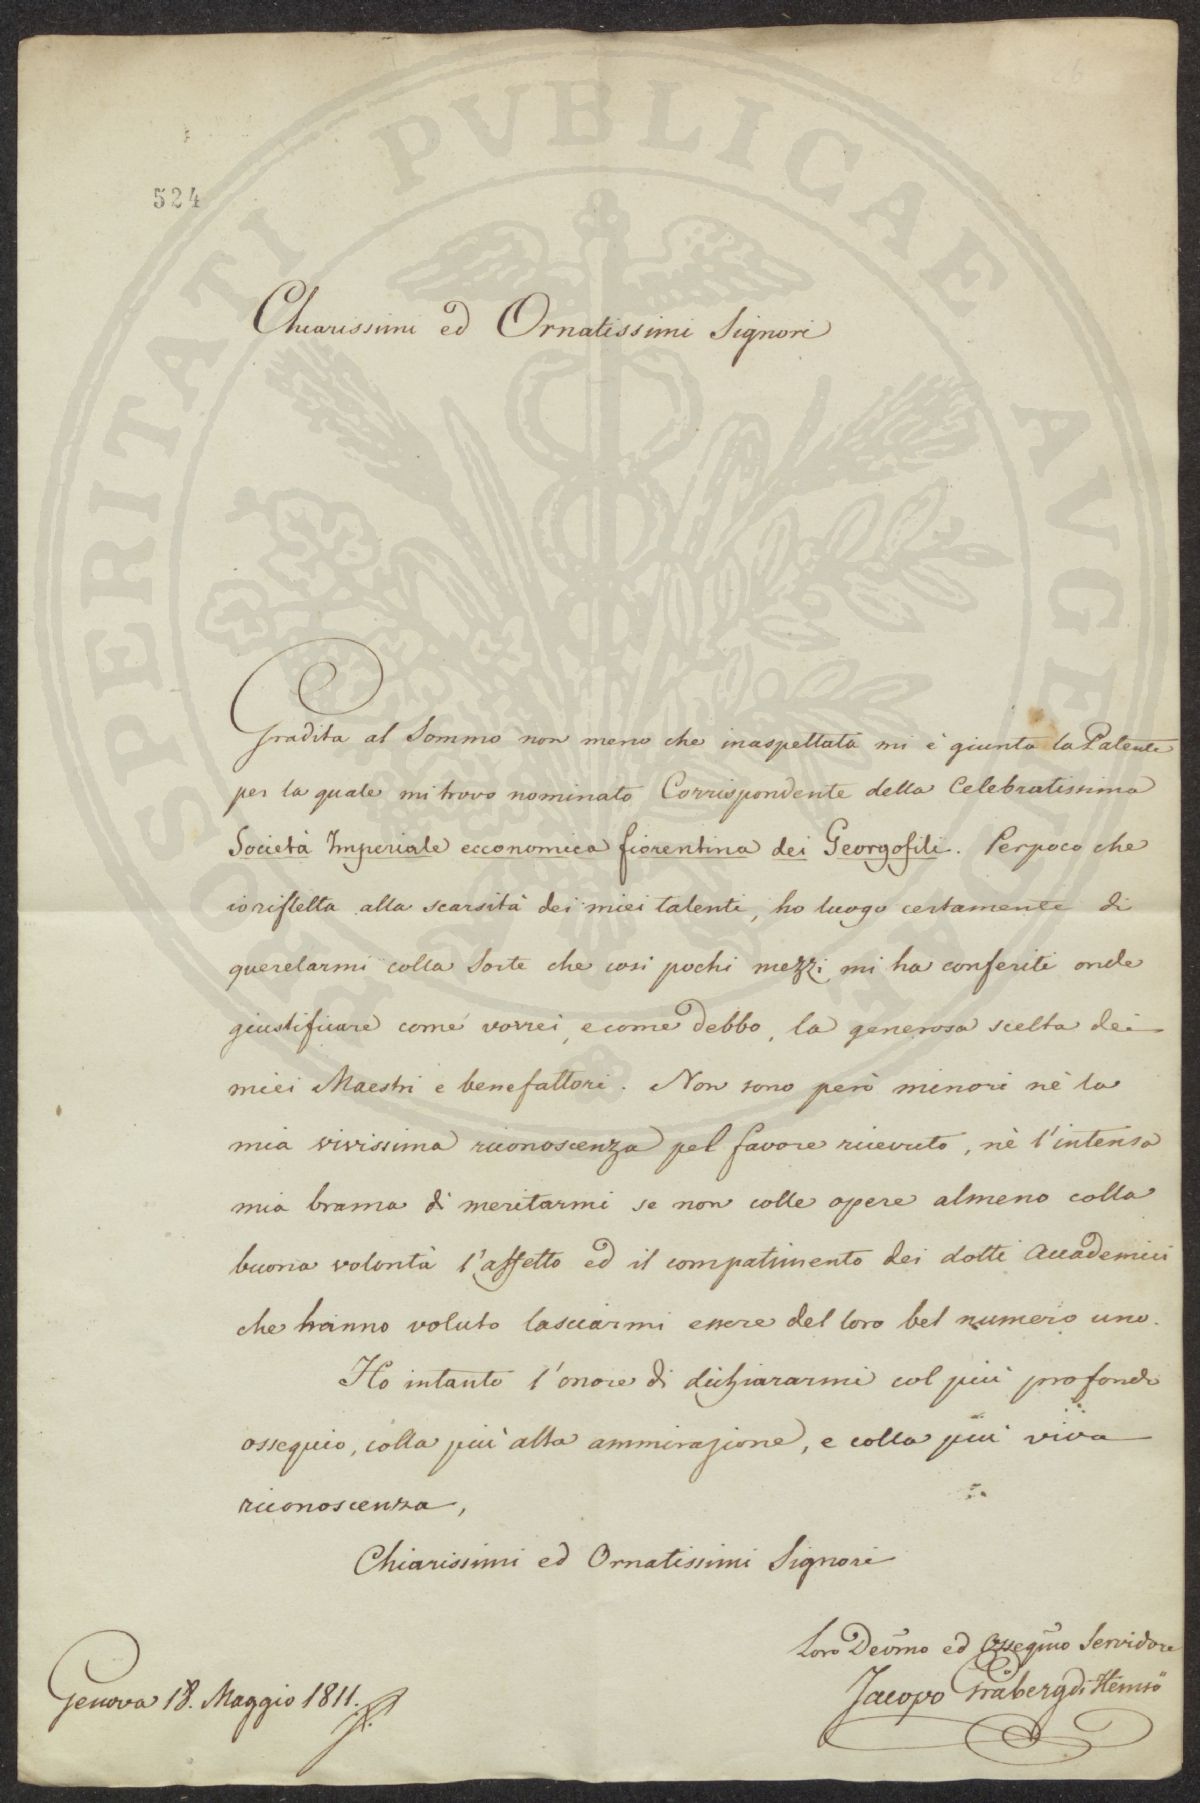 26
524
PROSPERITATI PVBLICAE AVGENDAE
Chiarissimi ed Ornatissimi Signori
Gradita al Sommo non meno che inaspettata mi è giunta la Patente
per la quale mi trovo nominato Corrispondente della Celebratissima
Società Imperiale economica fiorentina dei Georgofili. Per poco che
io rifletta alla scarsità dei miei talenti, ho luogo certamente di
querelarmi colla Sorte che così pochi mezzi mi ha conferiti onde
giustificare come vorrei, e come debbo, la generosa scelta dei
miei Maestri e benefattori. Non sono però minori nè la
mia vivissima riconoscenza pel favore ricevuto, nè l'intensa
mia brama di meritarmi se non colle opere almeno colla
buona volontà l'affetto ed il compatimento dei dotti Accademici
che hanno voluto lasciarmi essere del loro bel numero uno.
Ho intanto l'onore di dichiararmi col più profondo
ossequio, colla più alta ammirazione, e colla più viva
riconoscenza,
Chiarissimi ed Ornatissimi Signori
Loro Devmo ed Ossequmo Servidore
Jacopo Graberg di Hemsö
Genova 18. Maggio 1811.